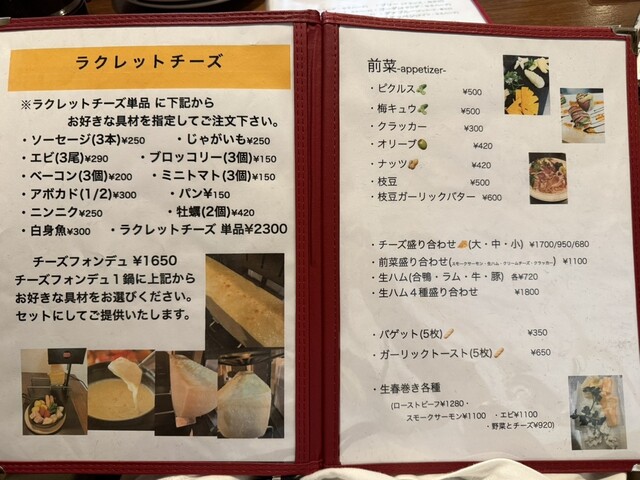 ラクレットチーズ
※ラクレットチーズ単品 に下記から
お好きな具材を指定してご注文下さい。
・ソーセージ(3本)¥250 ・じゃがいも¥250
・エビ(3尾)¥290 ・ブロッコリー(3個)¥150
・ベーコン(3個)¥200 ・ミニトマト(3個)¥150
・アボカド(1/2)¥300 ・パン¥150
・ニンニク¥250 ・牡蠣(2個)¥420
・白身魚¥300 ・ラクレットチーズ 単品¥2300
チーズフォンデュ ¥1650
チーズフォンデュ1鍋に上記から
お好きな具材をお選びください。
セットにしてご提供いたします。
前菜-appetizer-
・ピクルス ¥500
・梅キュウ ¥500
・クラッカー ¥300
・オリーブ ¥420
・ナッツ ¥420
・枝豆 ¥500
・枝豆ガーリックバター ¥600
・チーズ盛り合わせ(大・中・小) ¥1700/950/680
・前菜盛り合わせ(スモークサーモン・生ハム・クリームチーズ・クラッカー) ¥1100
・生ハム(合鴨・ラム・牛・豚) 各¥720
・生ハム4種盛り合わせ ¥1800
・バゲット(5枚) ¥350
・ガーリックトースト(5枚) ¥650
・生春巻き各種
(ローストビーフ¥1280・
スモークサーモン¥1100 ・エビ¥1100
・野菜とチーズ¥920)